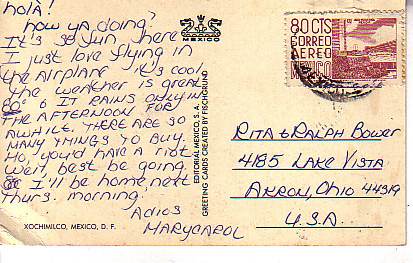 hola!
how ya doing?
It's so fun here
I just love flying in
the airplane it's cool
the weather is great
80° & IT RAINS ONLY IN
THE AFTERNOON FOR
AWHILE. THERE ARE SO
MANY THINGS TO BUY.
Ho, you'd have a riot
Well, best be going
I'll be home next
thurs. morning.
Adios
MARYCAROL
XOCHIMILCO, MEXICO, D. F.
MEXICO
EDITORIAL MEXICO, S. A.
GREETING CARDS CREATED BY FISCHGRUND
80 CTS
CORREO
AEREO
MEXICO
RITA & RALPH BOWER
4185 LAKE VISTA
AKRON, OHIO 44319
U.S.A.